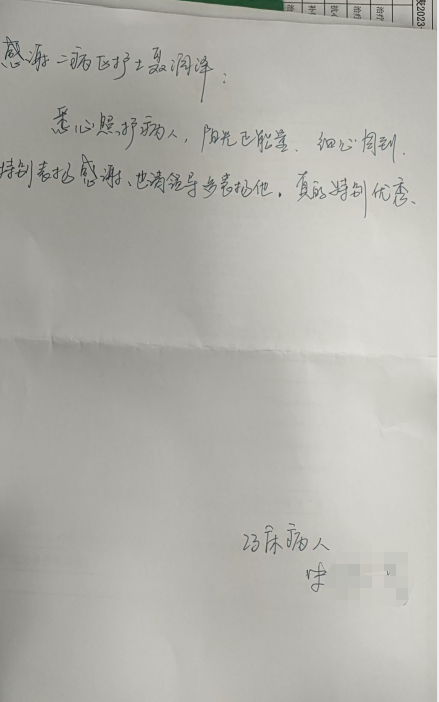 2023
治疗
治疗
治疗
感谢二病区护士聂润泽：
悉心照护病人，阳光正能量、细心周到.
特别表扬感谢、也请领导多表扬他。真的特别优秀、
23床病人